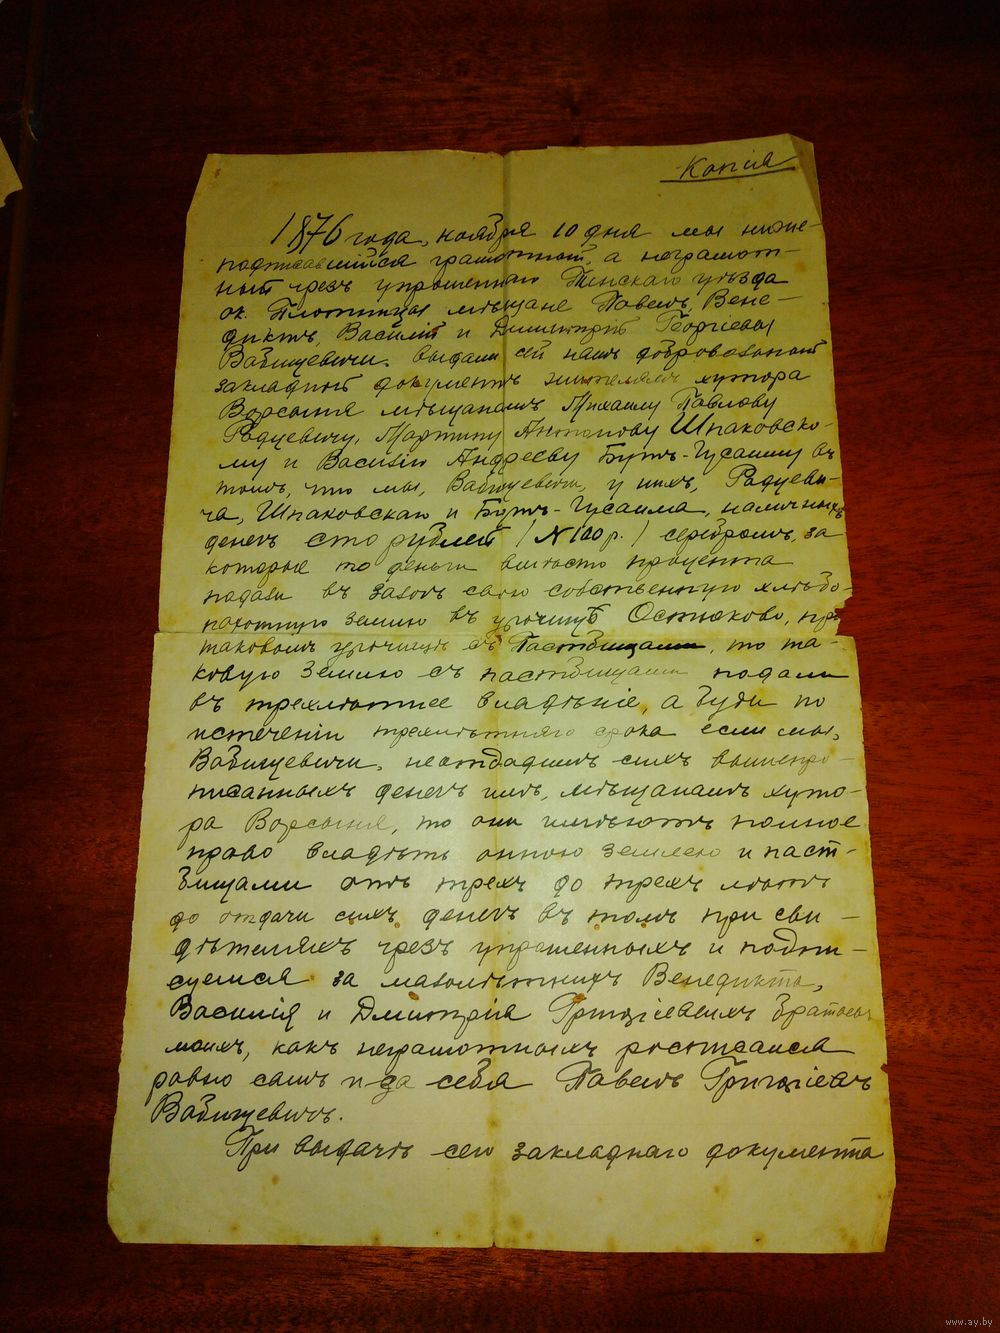 Копія
1876 года, ноября 10 дня мы ниже-
подписавшійся грамотный, а неграмот-
ный чрезъ упрошеннаго Пинскаго уѣзда
ок. Плотницы мѣщане Павелъ, Вене-
диктъ, Василій и Димитрій Георгіевы
Вабищевичи. выдали сей нашъ добровольный
закладный документъ жителямъ хутора
Ворсыня мѣщанамъ Михаилу Павлову
Радцевичу, Мартину Антонову Шпаковско-
му и Василію Андрееву Бутъ-Гусаиму въ
томъ, что мы, Вабищевичи, у нихъ, Радцеви-
ча, Шпаковскаго и Бутъ-Гусаима, наличныхъ
денегъ сто рублей (№100 р.) серебромъ, за
которые то деньги вмѣсто процента
подали въ залогъ свою собственную хлѣбо-
пахотную землю въ урочищѣ Остюково, при
таковомъ урочищѣ съ Пастбищами, то та-
ковую землю съ пастбищами подали
въ трехлѣтнее владѣніе, а буди по
истеченіи трехлѣтняго срока если мы,
Вабищевичи, неотдадимъ сихъ вышепро-
писанныхъ денегъ имъ, мѣщанамъ хуто-
ра Ворсыня, то они имѣютъ полное
право владѣть оною землею и паст-
бищами отъ трехъ до трехъ лѣтъ
до отдачи сихъ денегъ въ томъ при сви-
дѣтеляхъ чрезъ упрошенныхъ и подпи-
суемся за малолѣтнихъ Венедикта,
Василія и Дмитрія Григоріевыхъ братьевъ
моихъ, какъ неграмотныхъ росписался
равно самъ и за себя Павелъ Григоріевъ
Вабищевичъ.
При выдачѣ сего закладнаго документа
www.ay.by